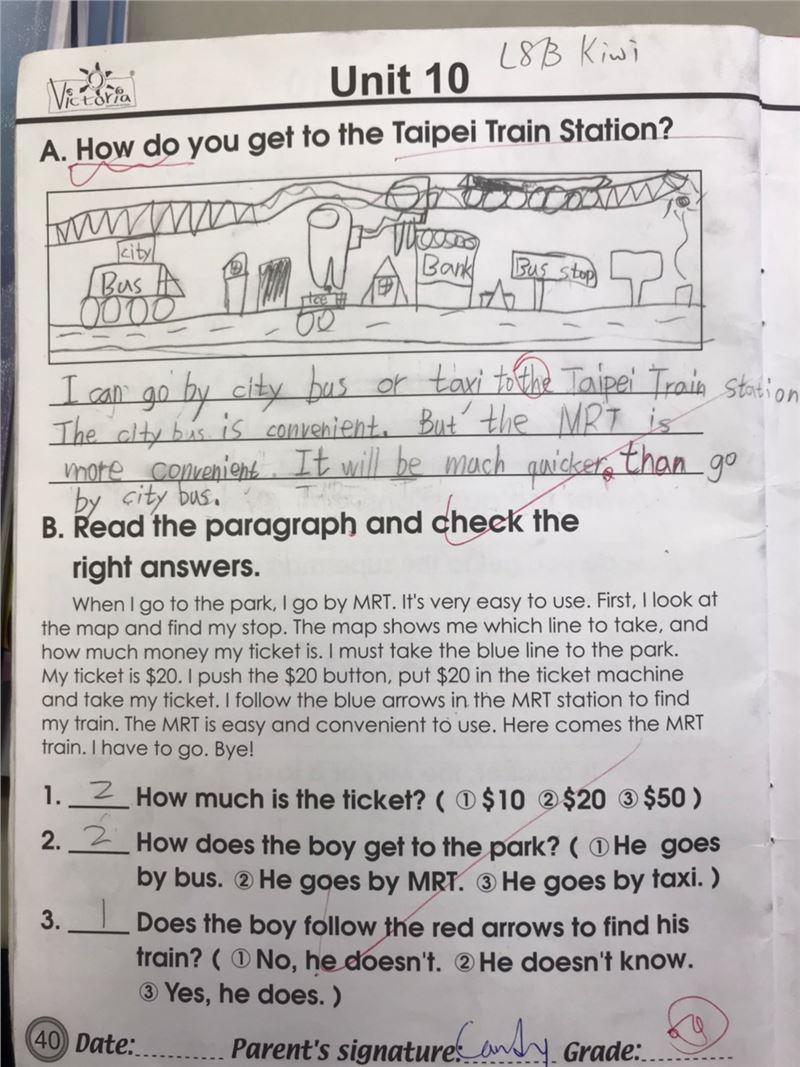 L8B Kiwi
Victoria
Unit 10
A. How do you get to the Taipei Train Station?
city
Bus
Ice
Bank
Bus stop
I can go by city bus or taxi to the Taipei Train Station
The city bus is convenient. But the MRT is
more convenient. It will be much quicker than go
by city bus.
B. Read the paragraph and check the
right answers.
When I go to the park, I go by MRT. It's very easy to use. First, I look at
the map and find my stop. The map shows me which line to take, and
how much money my ticket is. I must take the blue line to the park.
My ticket is $20. I push the $20 button, put $20 in the ticket machine
and take my ticket. I follow the blue arrows in the MRT station to find
my train. The MRT is easy and convenient to use. Here comes the MRT
train. I have to go. Bye!
1. 2 How much is the ticket? ( ① $10 ② $20 ③ $50 )
2. 2 How does the boy get to the park? ( ① He goes
by bus. ② He goes by MRT. ③ He goes by taxi. )
3. 1 Does the boy follow the red arrows to find his
train? ( ① No, he doesn't. ② He doesn't know.
③ Yes, he does. )
40 Date:.......... Parent's signature: Candy Grade:..........